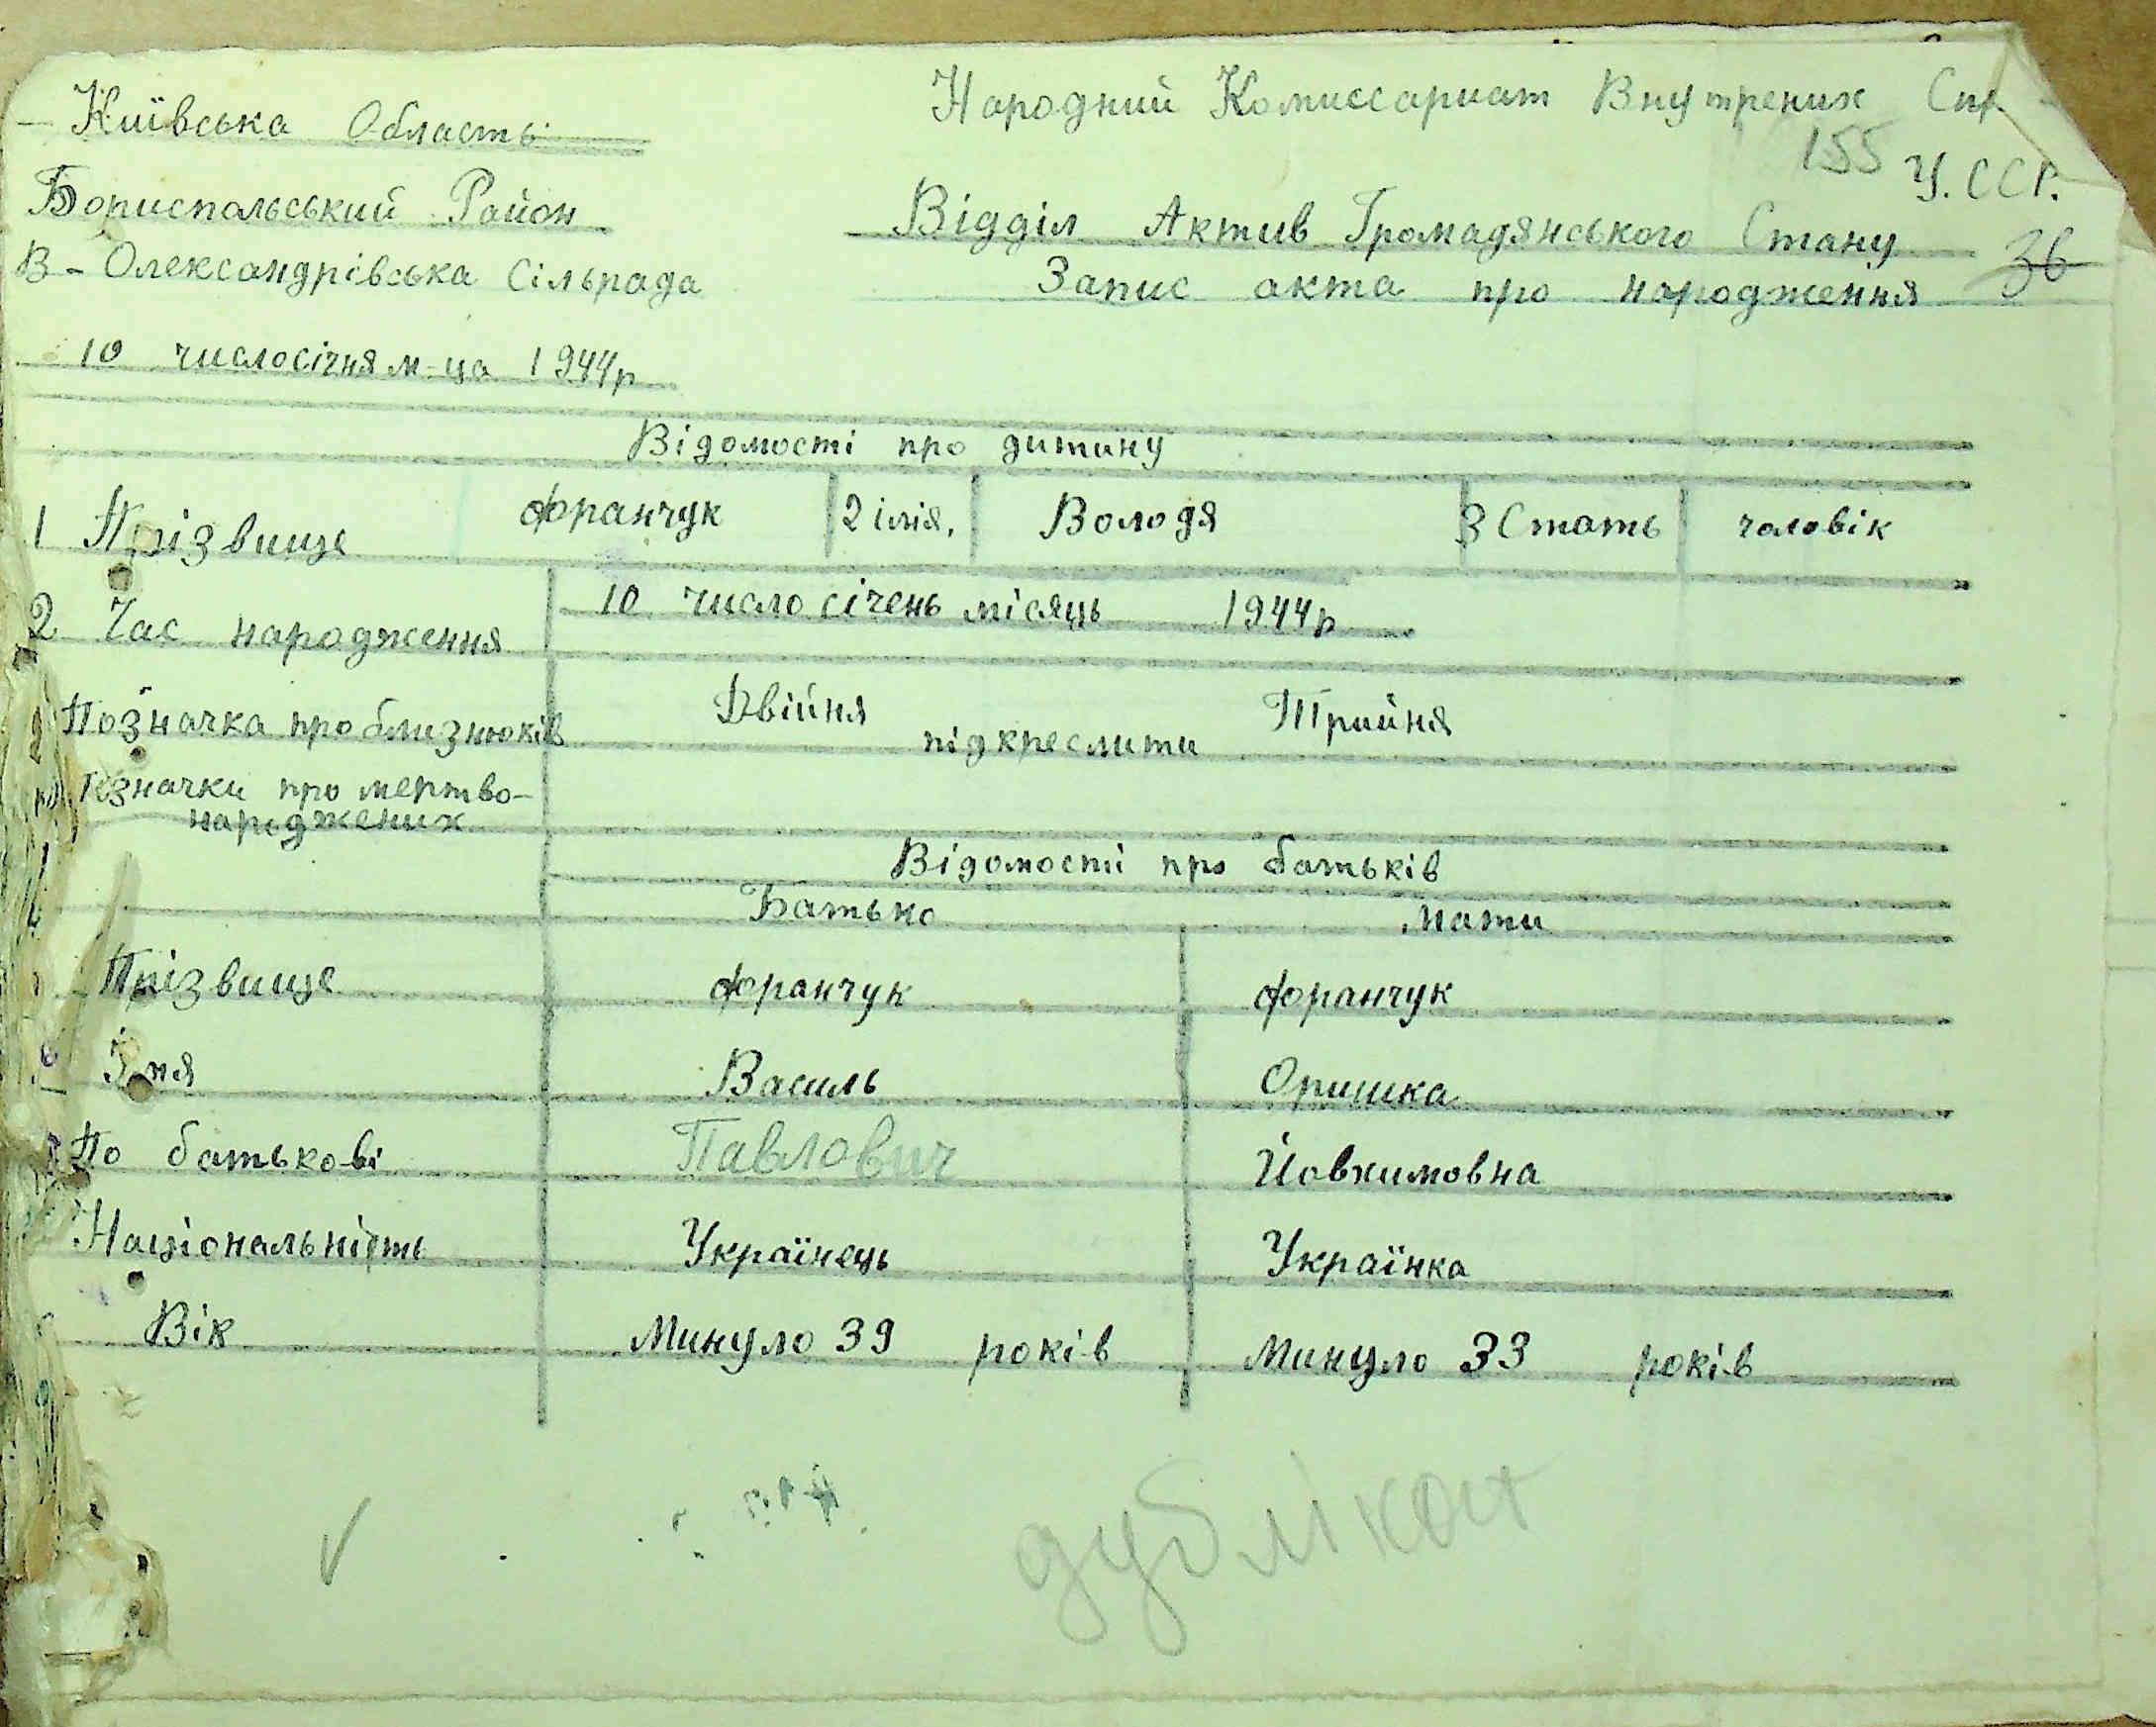 Київська Область
Народний Комиссариат Внутрених
155
У.ССР.
Бориспольський Район
Відділ Актив Громадянського Стану
36
В-Олександрівська Сільрада
Запис акта про народження
10 число січня м-ца 1944р
Відомості про дитину
1 Прізвище Франчук 2 імія, Володя 3 Стать чоловік
2 Час народження 10 число січень місяць 1944р
Позначка про близнюків Двійня підкреслити Трийня
Позначки про мертво-
народжених
Відомості про батьків
Батько Мати
Прізвище Франчук Франчук
Імя Василь Оришка
По батькові Павлович Йовхимовна
Національність Українець Українка
Вік Минуло 39 років Минуло 33 років
дублікат